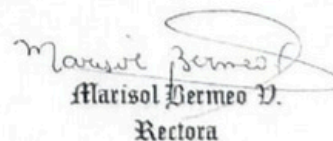 Marisol Bermeo
Marisol Bermeo V.
Rectora